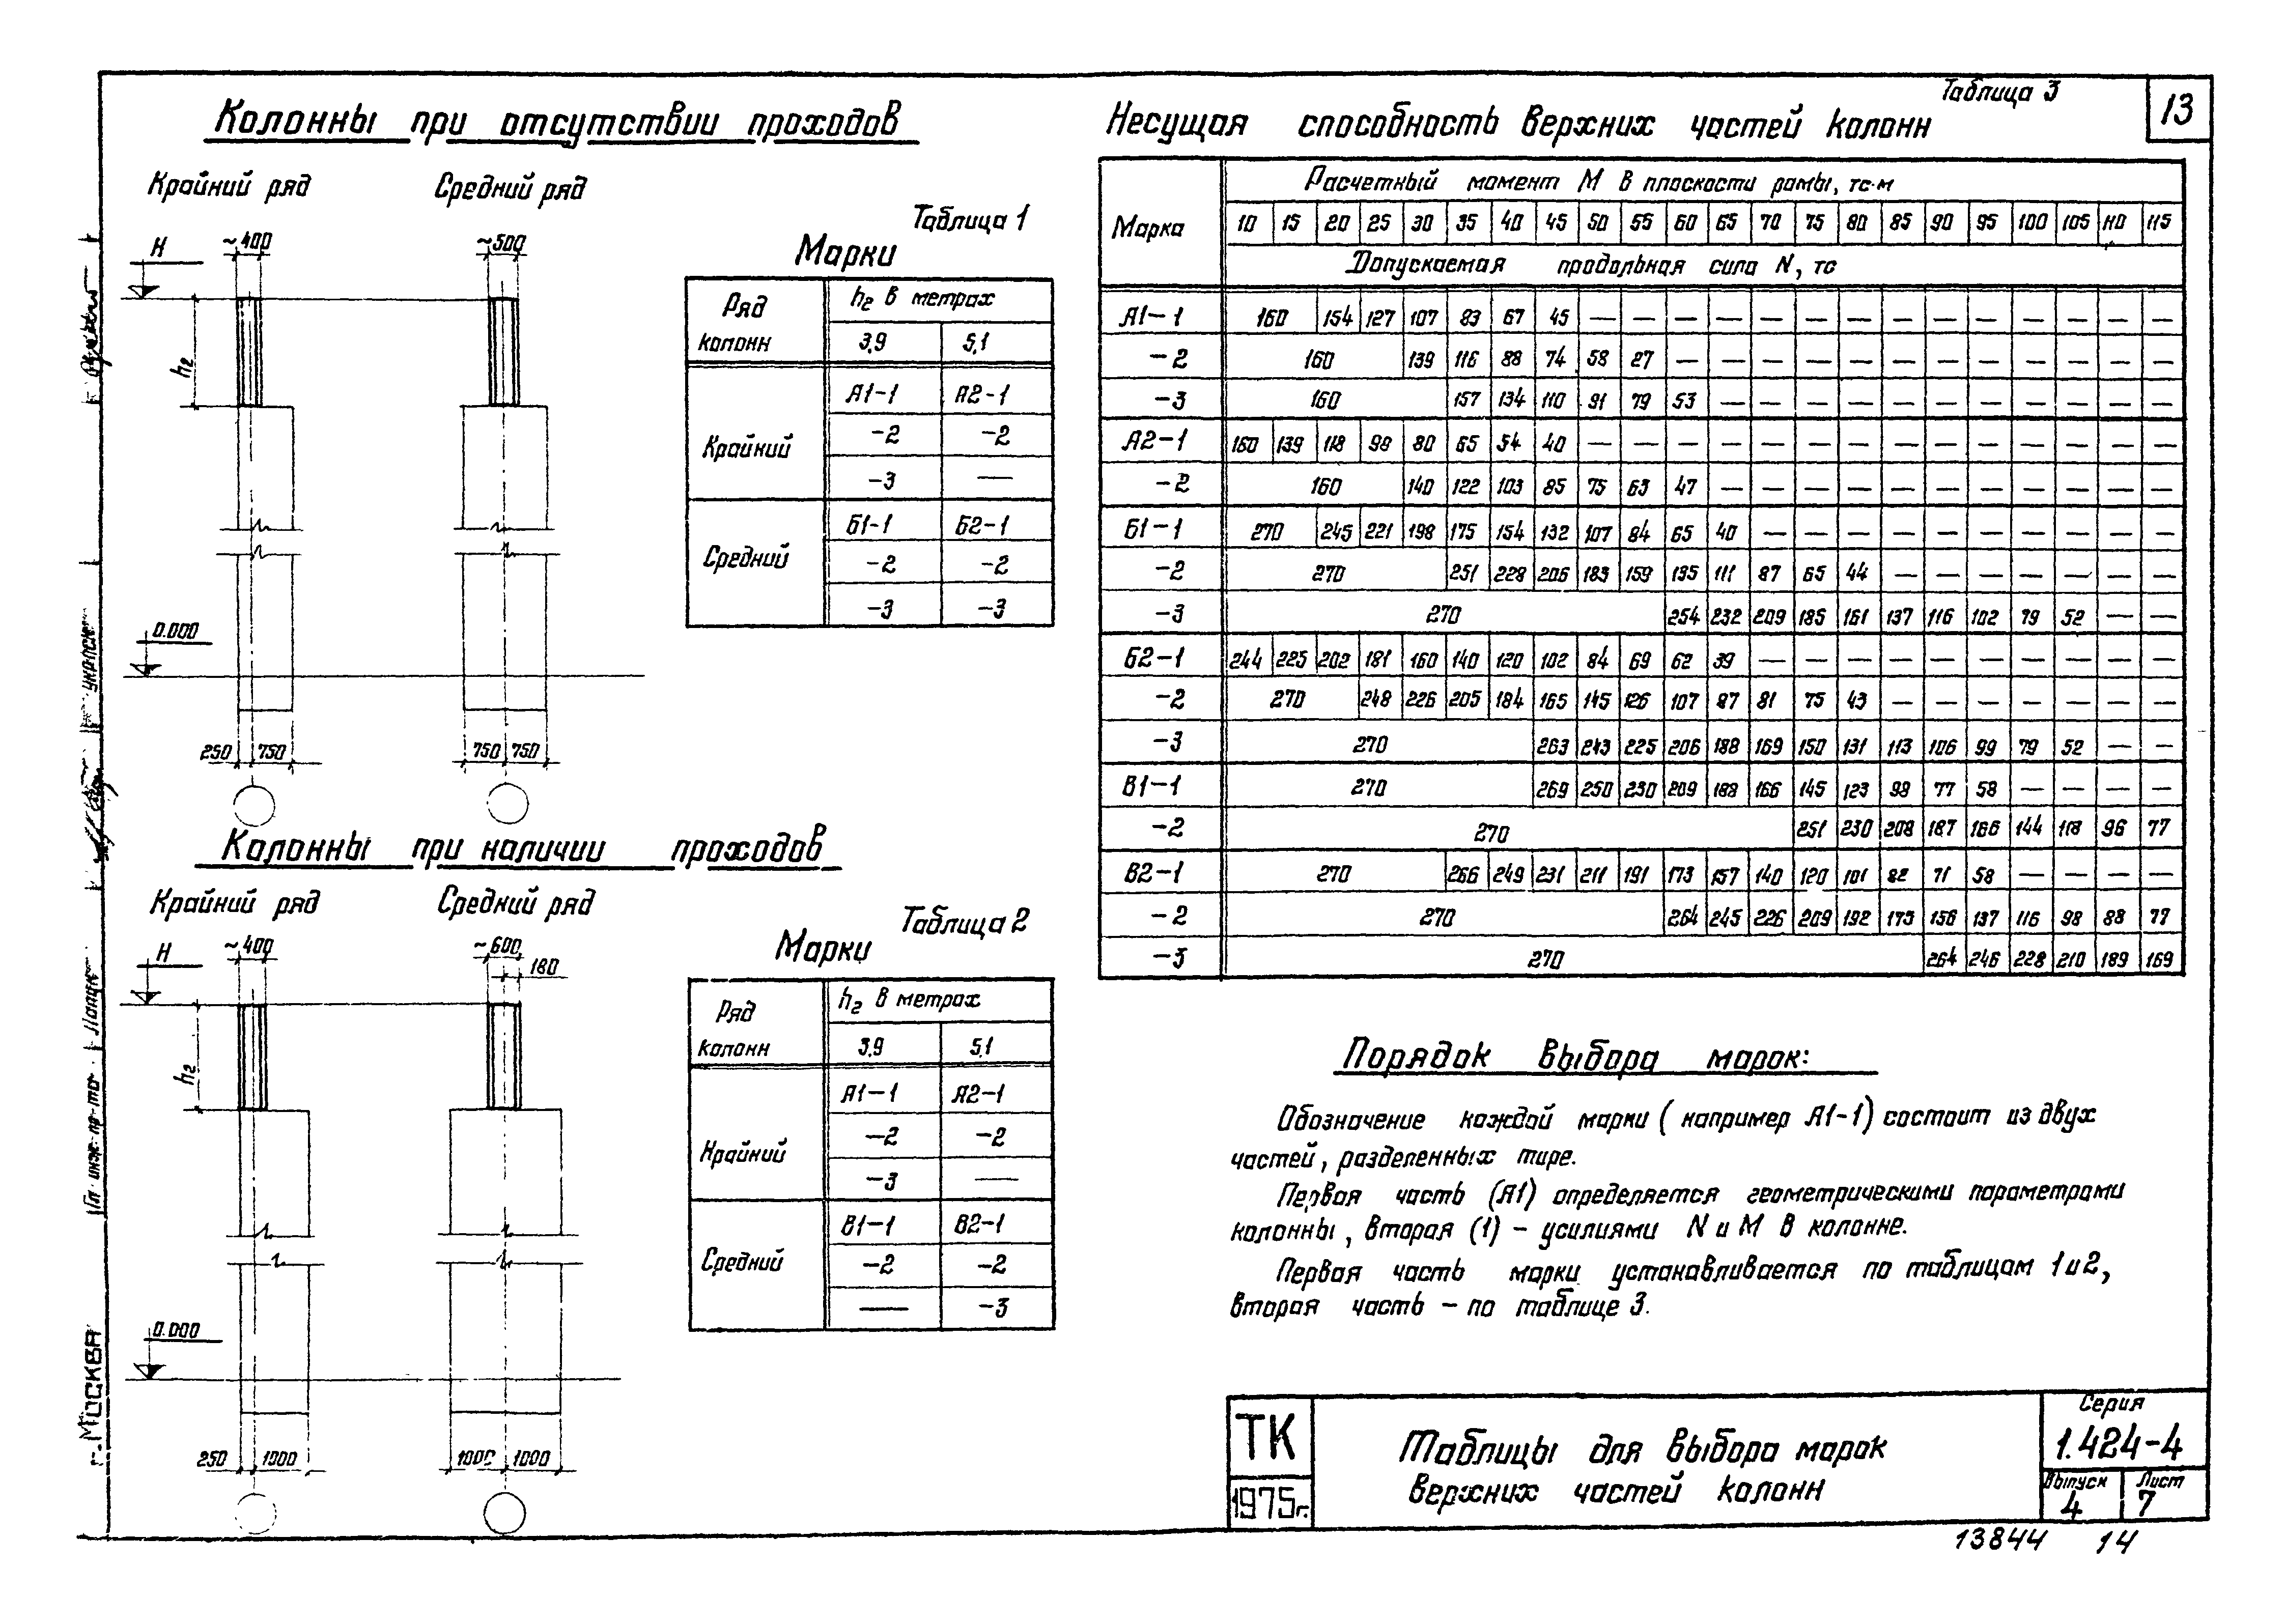 13
Колонны при отсутствии проходов
Крайний ряд Средний ряд
H ~400 ~500
h₂
0.000
250 750 750 750
Таблица 1
Марки
Ряд колонн h₂ в метрах
3,9 5,1
Крайний А1-1 А2-1
-2 -2
-3 —
Средний Б1-1 Б2-1
-2 -2
-3 -3
Колонны при наличии проходов
Крайний ряд Средний ряд
H ~400 ~600
180
h₂
0.000
250 1000 1000 1000
Таблица 2
Марки
Ряд колонн h₂ в метрах
3,9 5,1
Крайний А1-1 А2-1
-2 -2
-3 —
Средний В1-1 В2-1
-2 -2
— -3
Таблица 3
Несущая способность верхних частей колонн
Марка Расчетный момент М в плоскости рамы, тс·м
10 15 20 25 30 35 40 45 50 55 60 65 70 75 80 85 90 95 100 105 110 115
Допускаемая продольная сила N, тс
А1-1 160 154 127 107 83 67 45 — — — — — — — — — — — — — —
-2 160 139 116 88 74 58 27 — — — — — — — — — — — —
-3 160 157 134 110 91 79 53 — — — — — — — — — — —
А2-1 160 139 118 98 80 65 54 40 — — — — — — — — — — — — — —
-2 160 140 122 103 85 75 63 47 — — — — — — — — — — —
Б1-1 270 245 221 198 175 154 132 107 84 65 40 — — — — — — — — — —
-2 270 251 228 206 183 159 135 111 87 65 44 — — — — — — —
-3 270 254 232 209 185 161 137 116 102 79 52 — —
Б2-1 244 225 202 181 160 140 120 102 84 69 62 39 — — — — — — — — — —
-2 270 248 226 205 184 165 145 126 107 87 81 75 43 — — — — — — —
-3 270 263 243 225 206 188 169 150 131 113 106 99 79 52 — —
В1-1 270 269 250 230 209 188 166 145 123 99 77 58 — — — —
-2 270 251 230 208 187 166 144 118 96 77
В2-1 270 266 249 231 211 191 173 157 140 120 101 82 71 58 — — — —
-2 270 264 245 226 209 192 175 156 137 116 98 88 77
-3 270 264 246 228 210 189 169
Порядок выбора марок:
Обозначение каждой марки (например А1-1) состоит из двух
частей, разделенных тире.
Первая часть (А1) определяется геометрическими параметрами
колонны, вторая (1) – усилиями N и М в колонне.
Первая часть марки устанавливается по таблицам 1 и 2,
вторая часть – по таблице 3.
ТК
1975г.
Таблицы для выбора марок
верхних частей колонн
Серия
1.424-4
Выпуск Лист
4 7
13844 14
г. Москва